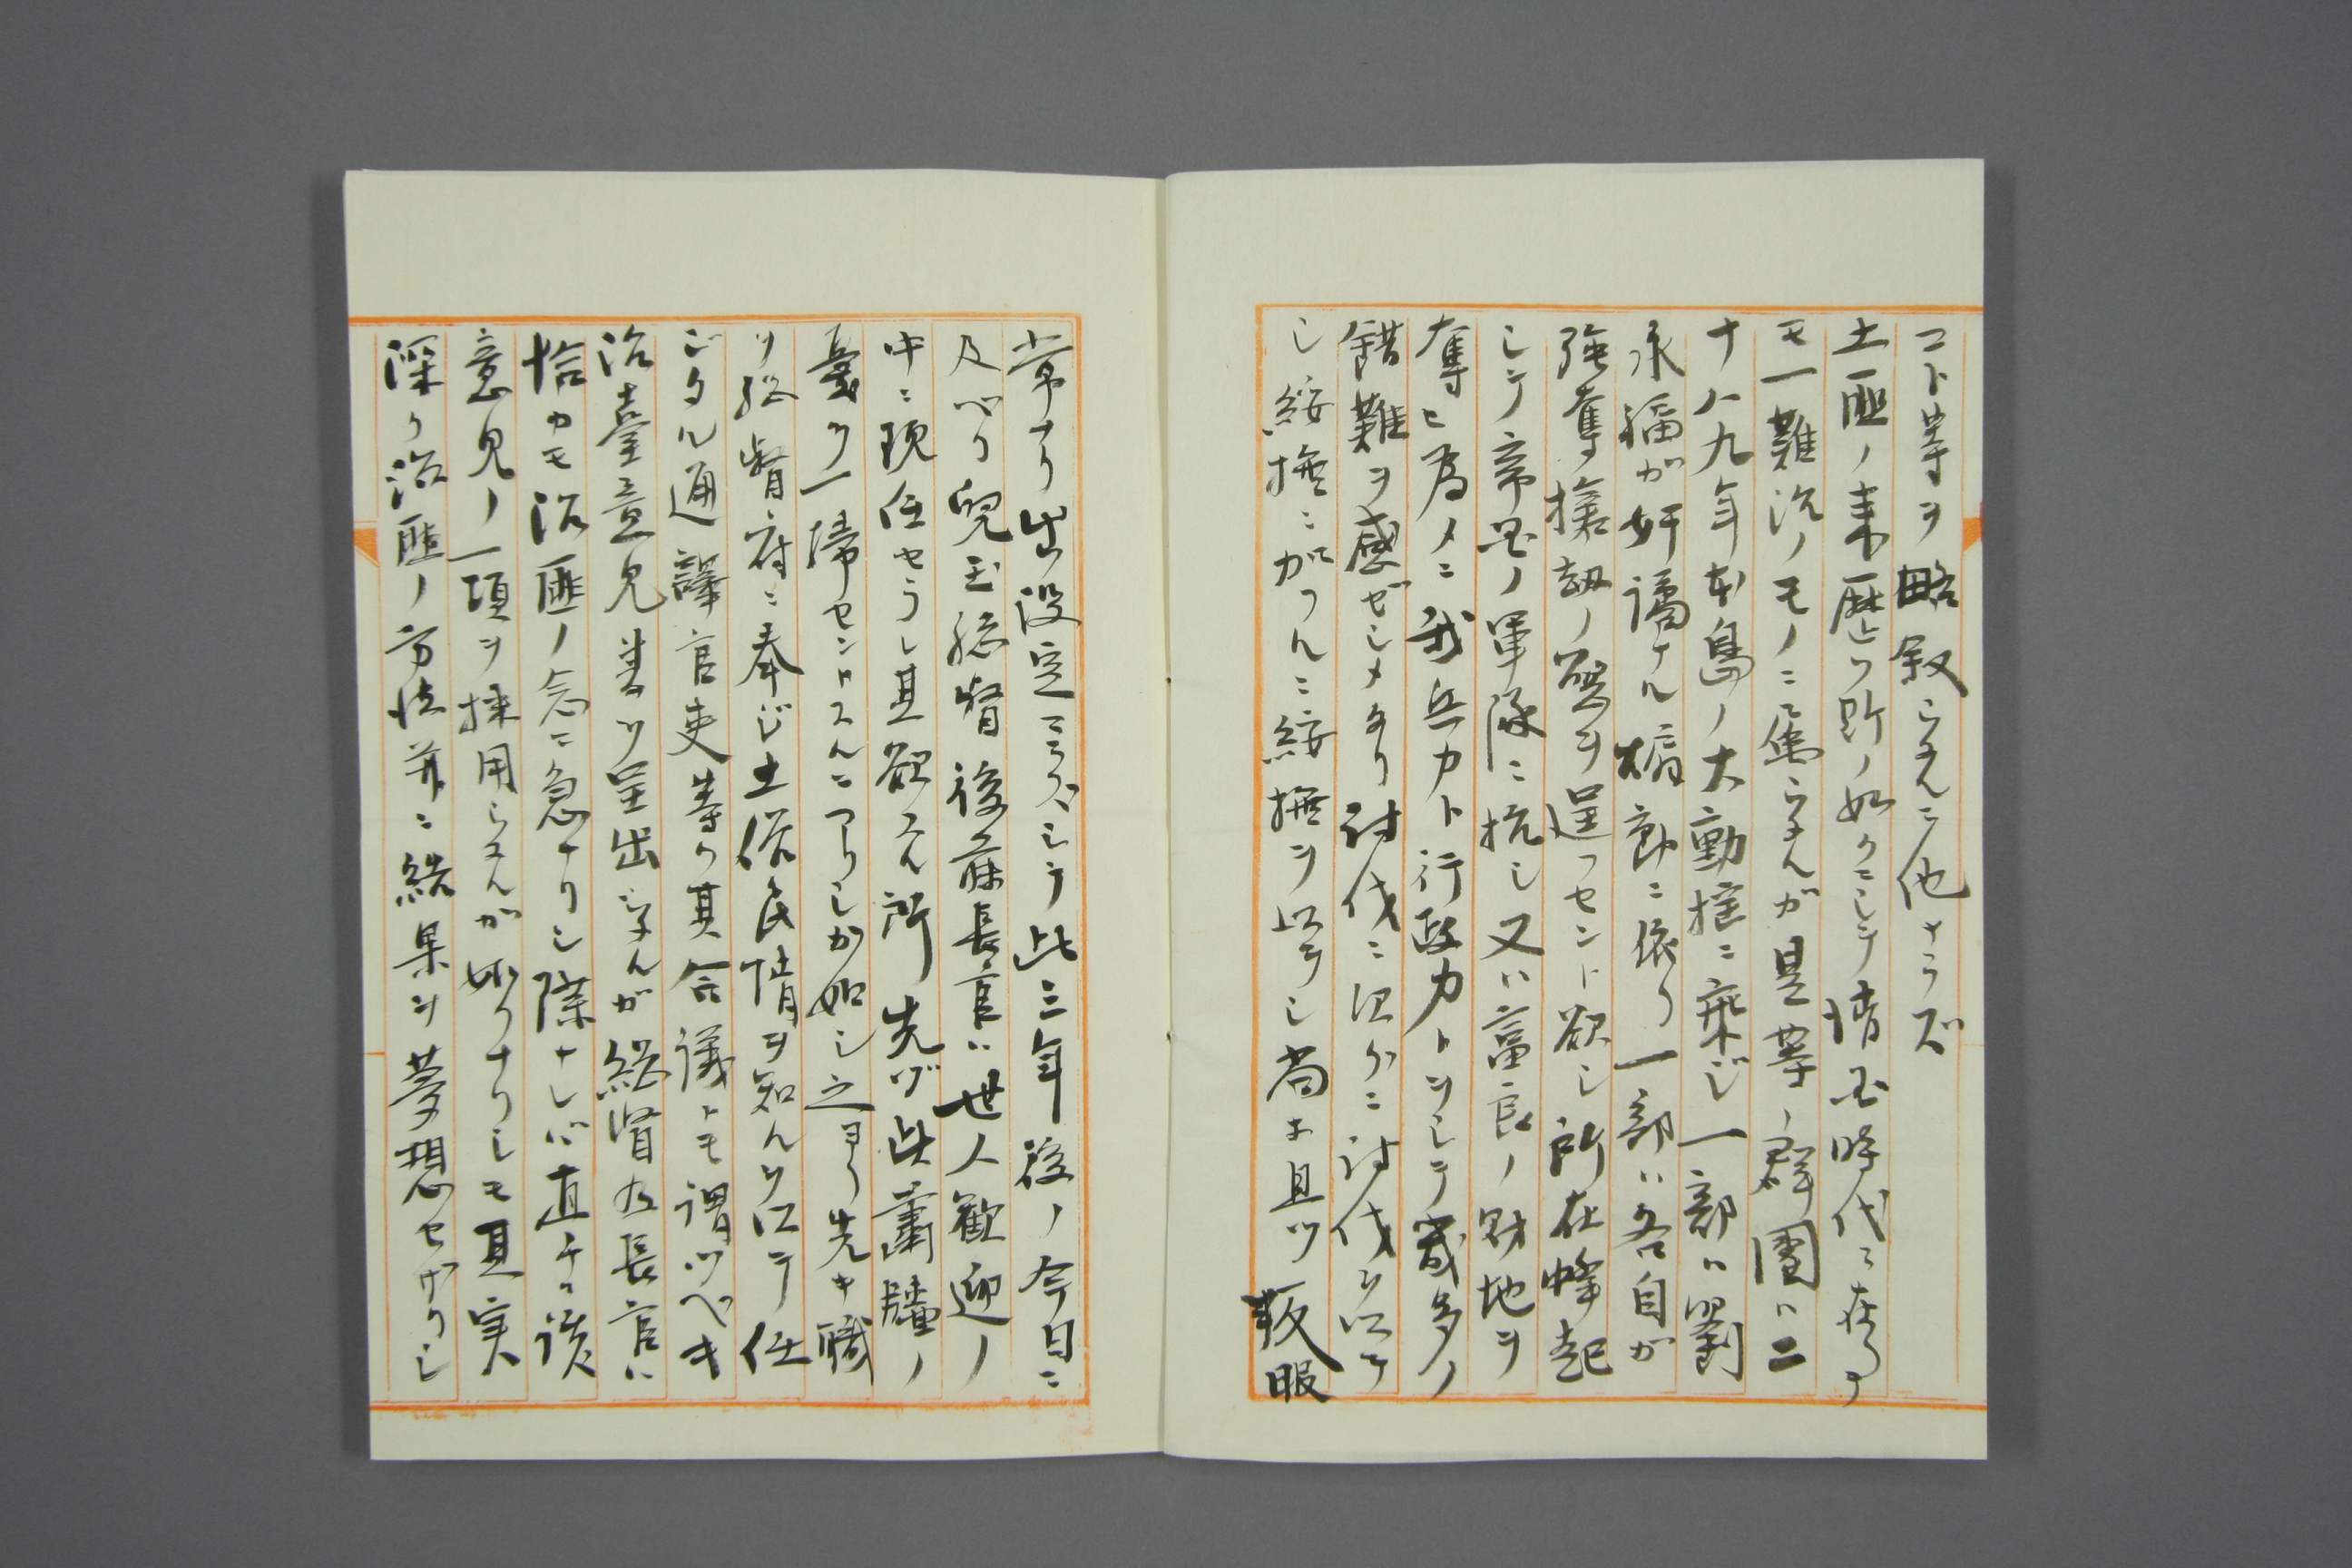 コト等ヲ略叙シタルニ他ナラズ
土匪ノ来歴ハ斯ノ如クニシテ清国時代ニ在テ
モ一難治ノモノニ属シタルガ是等ノ群団ハ二
十八九年本島ノ大動揺ニ乗ジ一部ハ劉
永福ガ奸譎ナル煽動ニ依リ一部ハ各自ガ
強奪搶劫ノ慾ヲ逞フセント欲シ所在蜂起
シテ帝国ノ軍隊ニ抗シ又ハ富良ノ財地ヲ
奪ヒ為メニ我兵力ト行政力トヲシテ幾多ノ
錯難ヲ感ゼシメタリ討伐ニ次グニ討伐ヲ以テ
シ綏撫ニ加フルニ綏撫ヲ以テシ尚ホ且ツ叛服
常ナク出没定マラズシテ此三年後ノ今日ニ
及ベリ児玉総督後藤長官ハ世人歓迎ノ
中ニ現任セラレ其欲スル所先ヅ此蕭牆ノ
憂ヲ一掃セントスルニアリシガ如シ之ヨリ先キ職
ヲ総督府ニ奉ジ土俗民情ヲ知ルヲ以テ任
ジタル通譯官吏等ク其合議トモ謂ツベキ
治臺意見書ヲ呈出シタルガ総督及長官ハ
恰カモ治匪ノ念ニ急ナリシ際ナレバ直チニ該
意見ノ一項ヲ採用シタルガ如クナリシモ其実
深ク治匪ノ方法并ニ結果ヲ夢想セザリシ